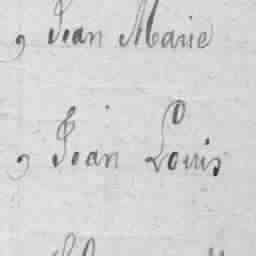 , Jean Marie
, Jean Louis